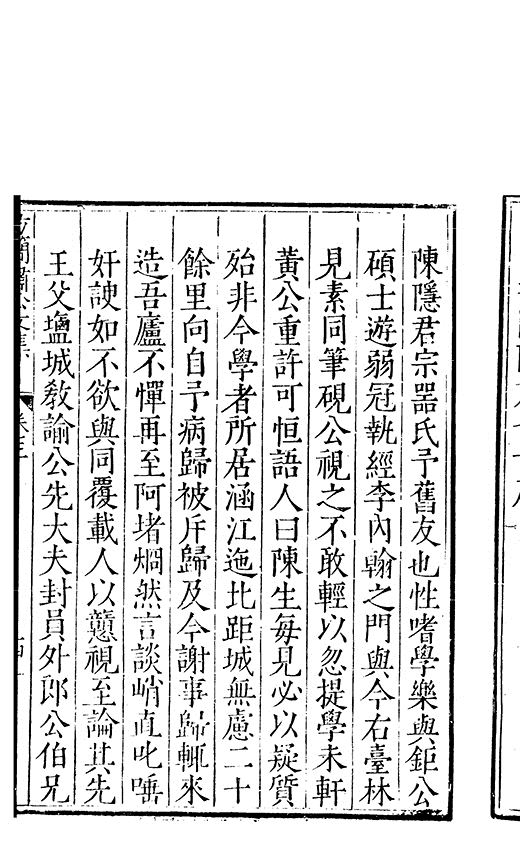 陳隱君宗器氏予舊友也性嗜學樂與鉅公
碩士遊弱冠執經李內翰之門與今右臺林
見素同筆硯公視之不敢輕以忽提學未軒
黃公重許可恒語人曰陳生每見必以疑質
殆非今學者所居涵江迤北距城無慮二十
餘里向自予病歸被斥歸及今謝事歸輒來
造吾廬不憚再至阿堵烱然言談峭直叱唾
奸諛如不欲與同覆載人以戇視至論其先
王父鹽城敎諭公先大夫封員外郎公伯兄